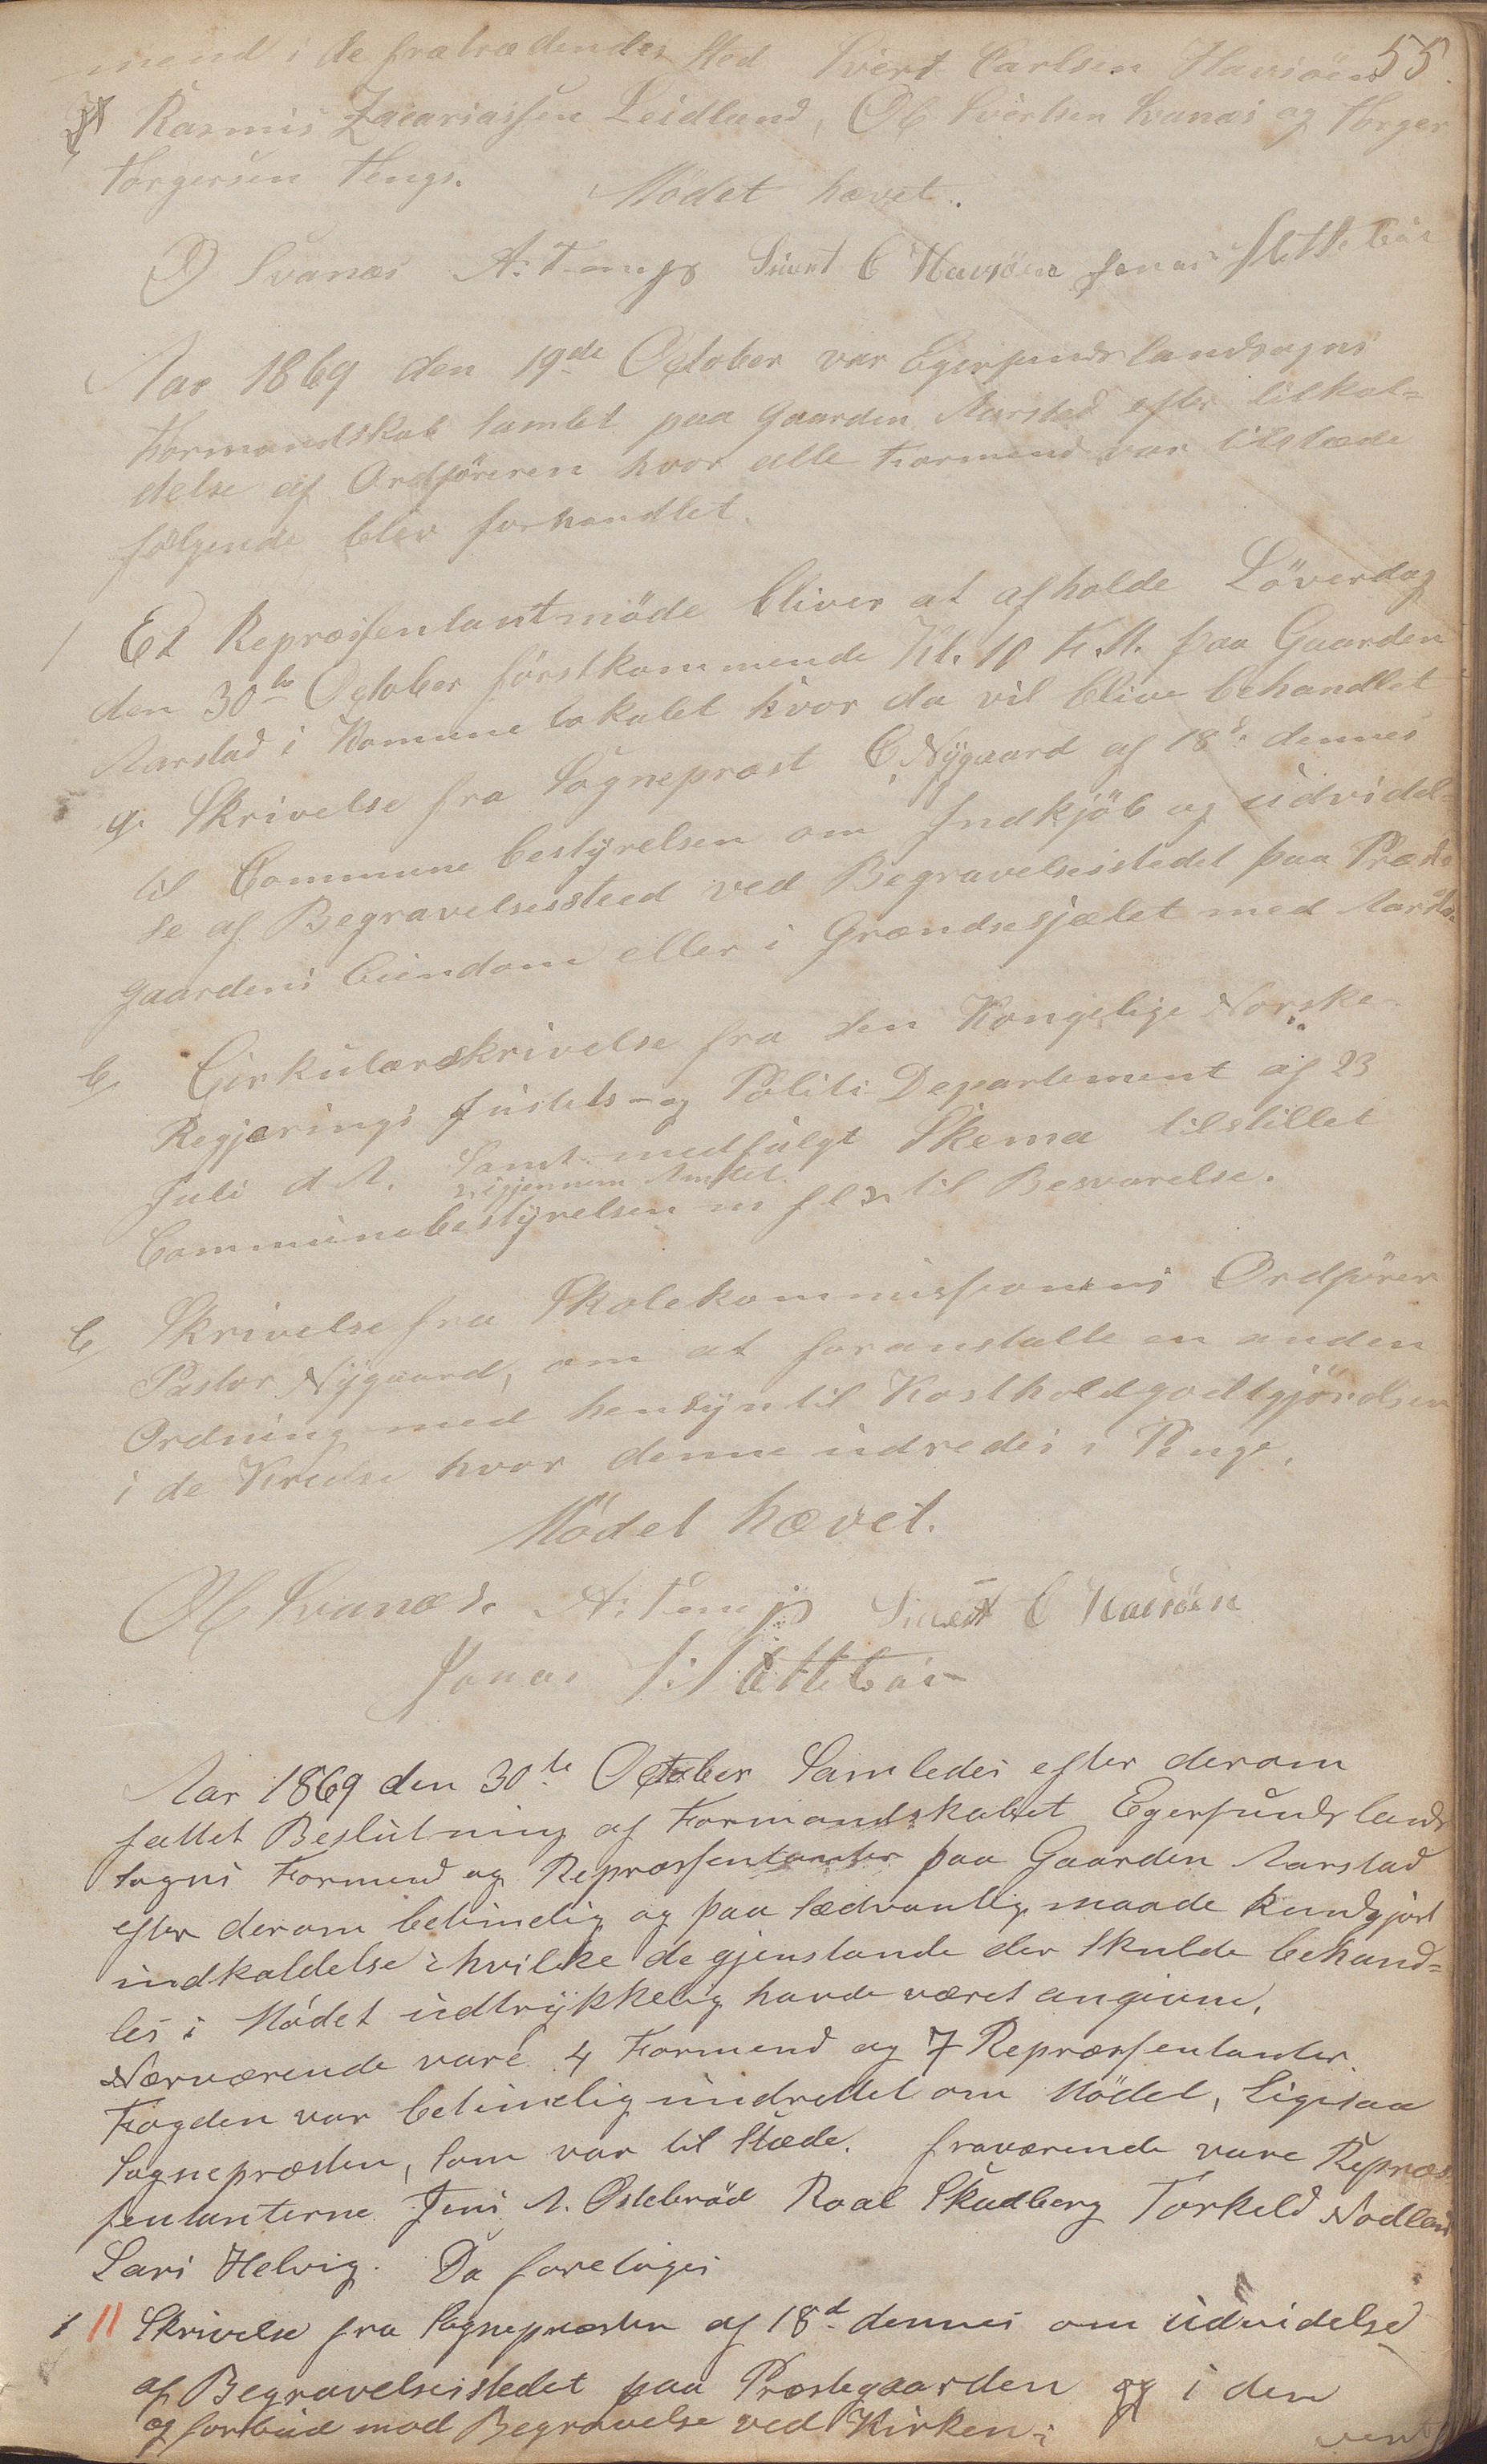 55.
mend i de fratrædendes Sted Sivert Carlsen Havsöen
Rasmus Zacariassen Leidland, Ole Sivertsen Svanæs og Torger
Torgersen Tengs.
Mödet hævet.
O Svanæs A. Tengs Sivert C Havsöen Jonas Slettebøe
Aar 1869 den 19de October var Egersunds landsogns
Formandskab samlet paa Gaarden Aarstad efter tilkal=
delse af Ordföreren hvor alle Formend var tilstæde
følgende blev forhandlet.
1 Et Repræssentantmöde bliver at afholde Löverdag
den 30te October förstkommende Kl. 10 F.M. paa Gaarden
Aarstad i Komunelokalet hvor da vil blive behandlet
a. Skrivelse fra Sognepræst C. Nygaard af 18d. dennes
til Commune bestyrelsen om Indkjöb og udvidel=
se af Begravelsessteed ved Begravelsesstedet paa Præste
gaardens Eiendom eller i Grændseskjælet med Aarsta
b, Cirkulærskrivelse fra den Kongelige Norske
Regjerings Justits- og Politi Departement af 23
Juli d A. samt medfulgt Skema tilstillet
igjennem Amtet.
Communebestyrelsen m fl til Besvarelse.
c, Skrivelse fra Skolekommissionens Ordförer
Pastor Nygaard, om at foranstalte en anden
Ordning med hensyn til Kostholdgodtgjörelsen
i de Kredse hvor denne udredes i Penge.
Mödet hævet.
Ole Svanæs. A. Tengs Sivert C Havsöen
Jonas S. Slettebøe
Aar 1869 den 30te October Samledes efter derom
fattet Beslutning af Formandskabet Egersunds lands
sogns Formend og Repræssentanter paa Gaarden Aarstad
efter derom betimelig og paa sædvanlig maade kundgjort
indkaldelse i hvilke de gjenstande der skulde behand=
les i Mödet udtrykkelig havde været angivne.
Nærværende vare 4 Formend og 7 Repræssentanter.
Fogden var betimelig undrettet om Mödet, Ligesaa
Sognepræsten, som var til stæde. fraværende vare Repræs
sentanterne Jens A. Ostebröd Roal Skadberg Torkeld Nodland
Lars Helvig. Da foretoges
1 11 Skrivelse fra Sognepræsten af 18d. dennes om udvidelse
af Begravelsesstedet paa Præstegaarden og i den
og forbud mod Begravelse ved Kirken.